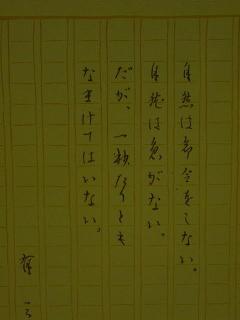 自然は命令をしない。
自然は急がない。
だが、一粒たりとも
なまけてはいない。